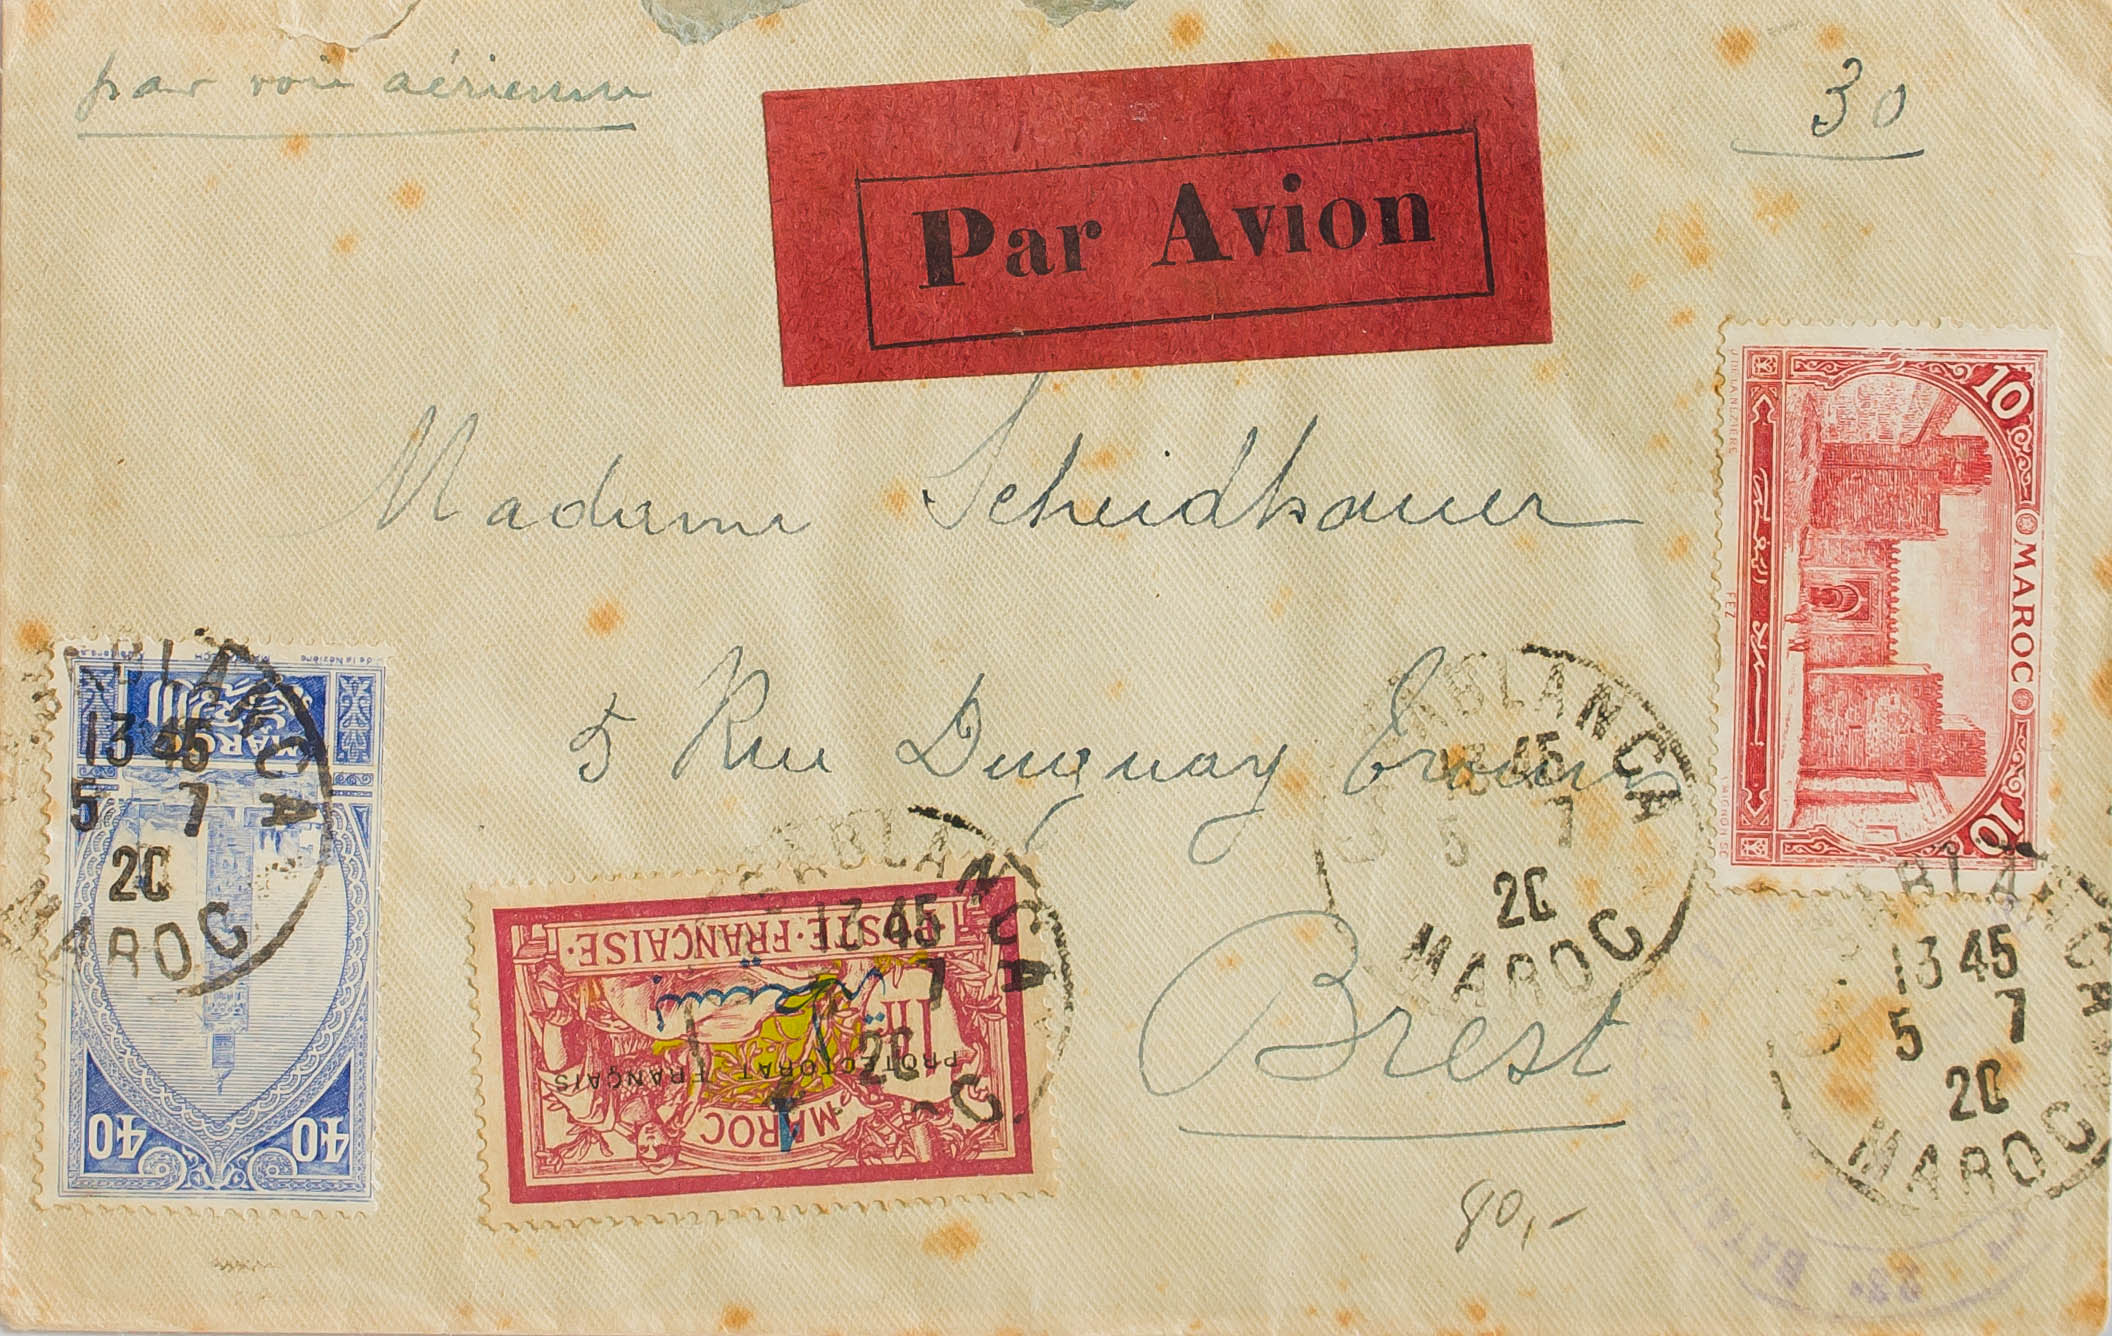 par voie aérienne
Par Avion
30
Madame Scheidhauer
5 Rue Duguay Trouin
Brest
80,-
10
MAROC
10
FEZ
J. DE LA NEZIERE
MAROC
40 40
CASABLANCA
13 45
5 7
20
MAROC
POSTE·FRANÇAISE·
1 Fr
PROTECTORAT FRANÇAIS
MAROC
CASABLANCA
13 45
7
20
CASABLANCA
13 45
5 7
20
MAROC
CASABLANCA
13 45
5 7
20
MAROC